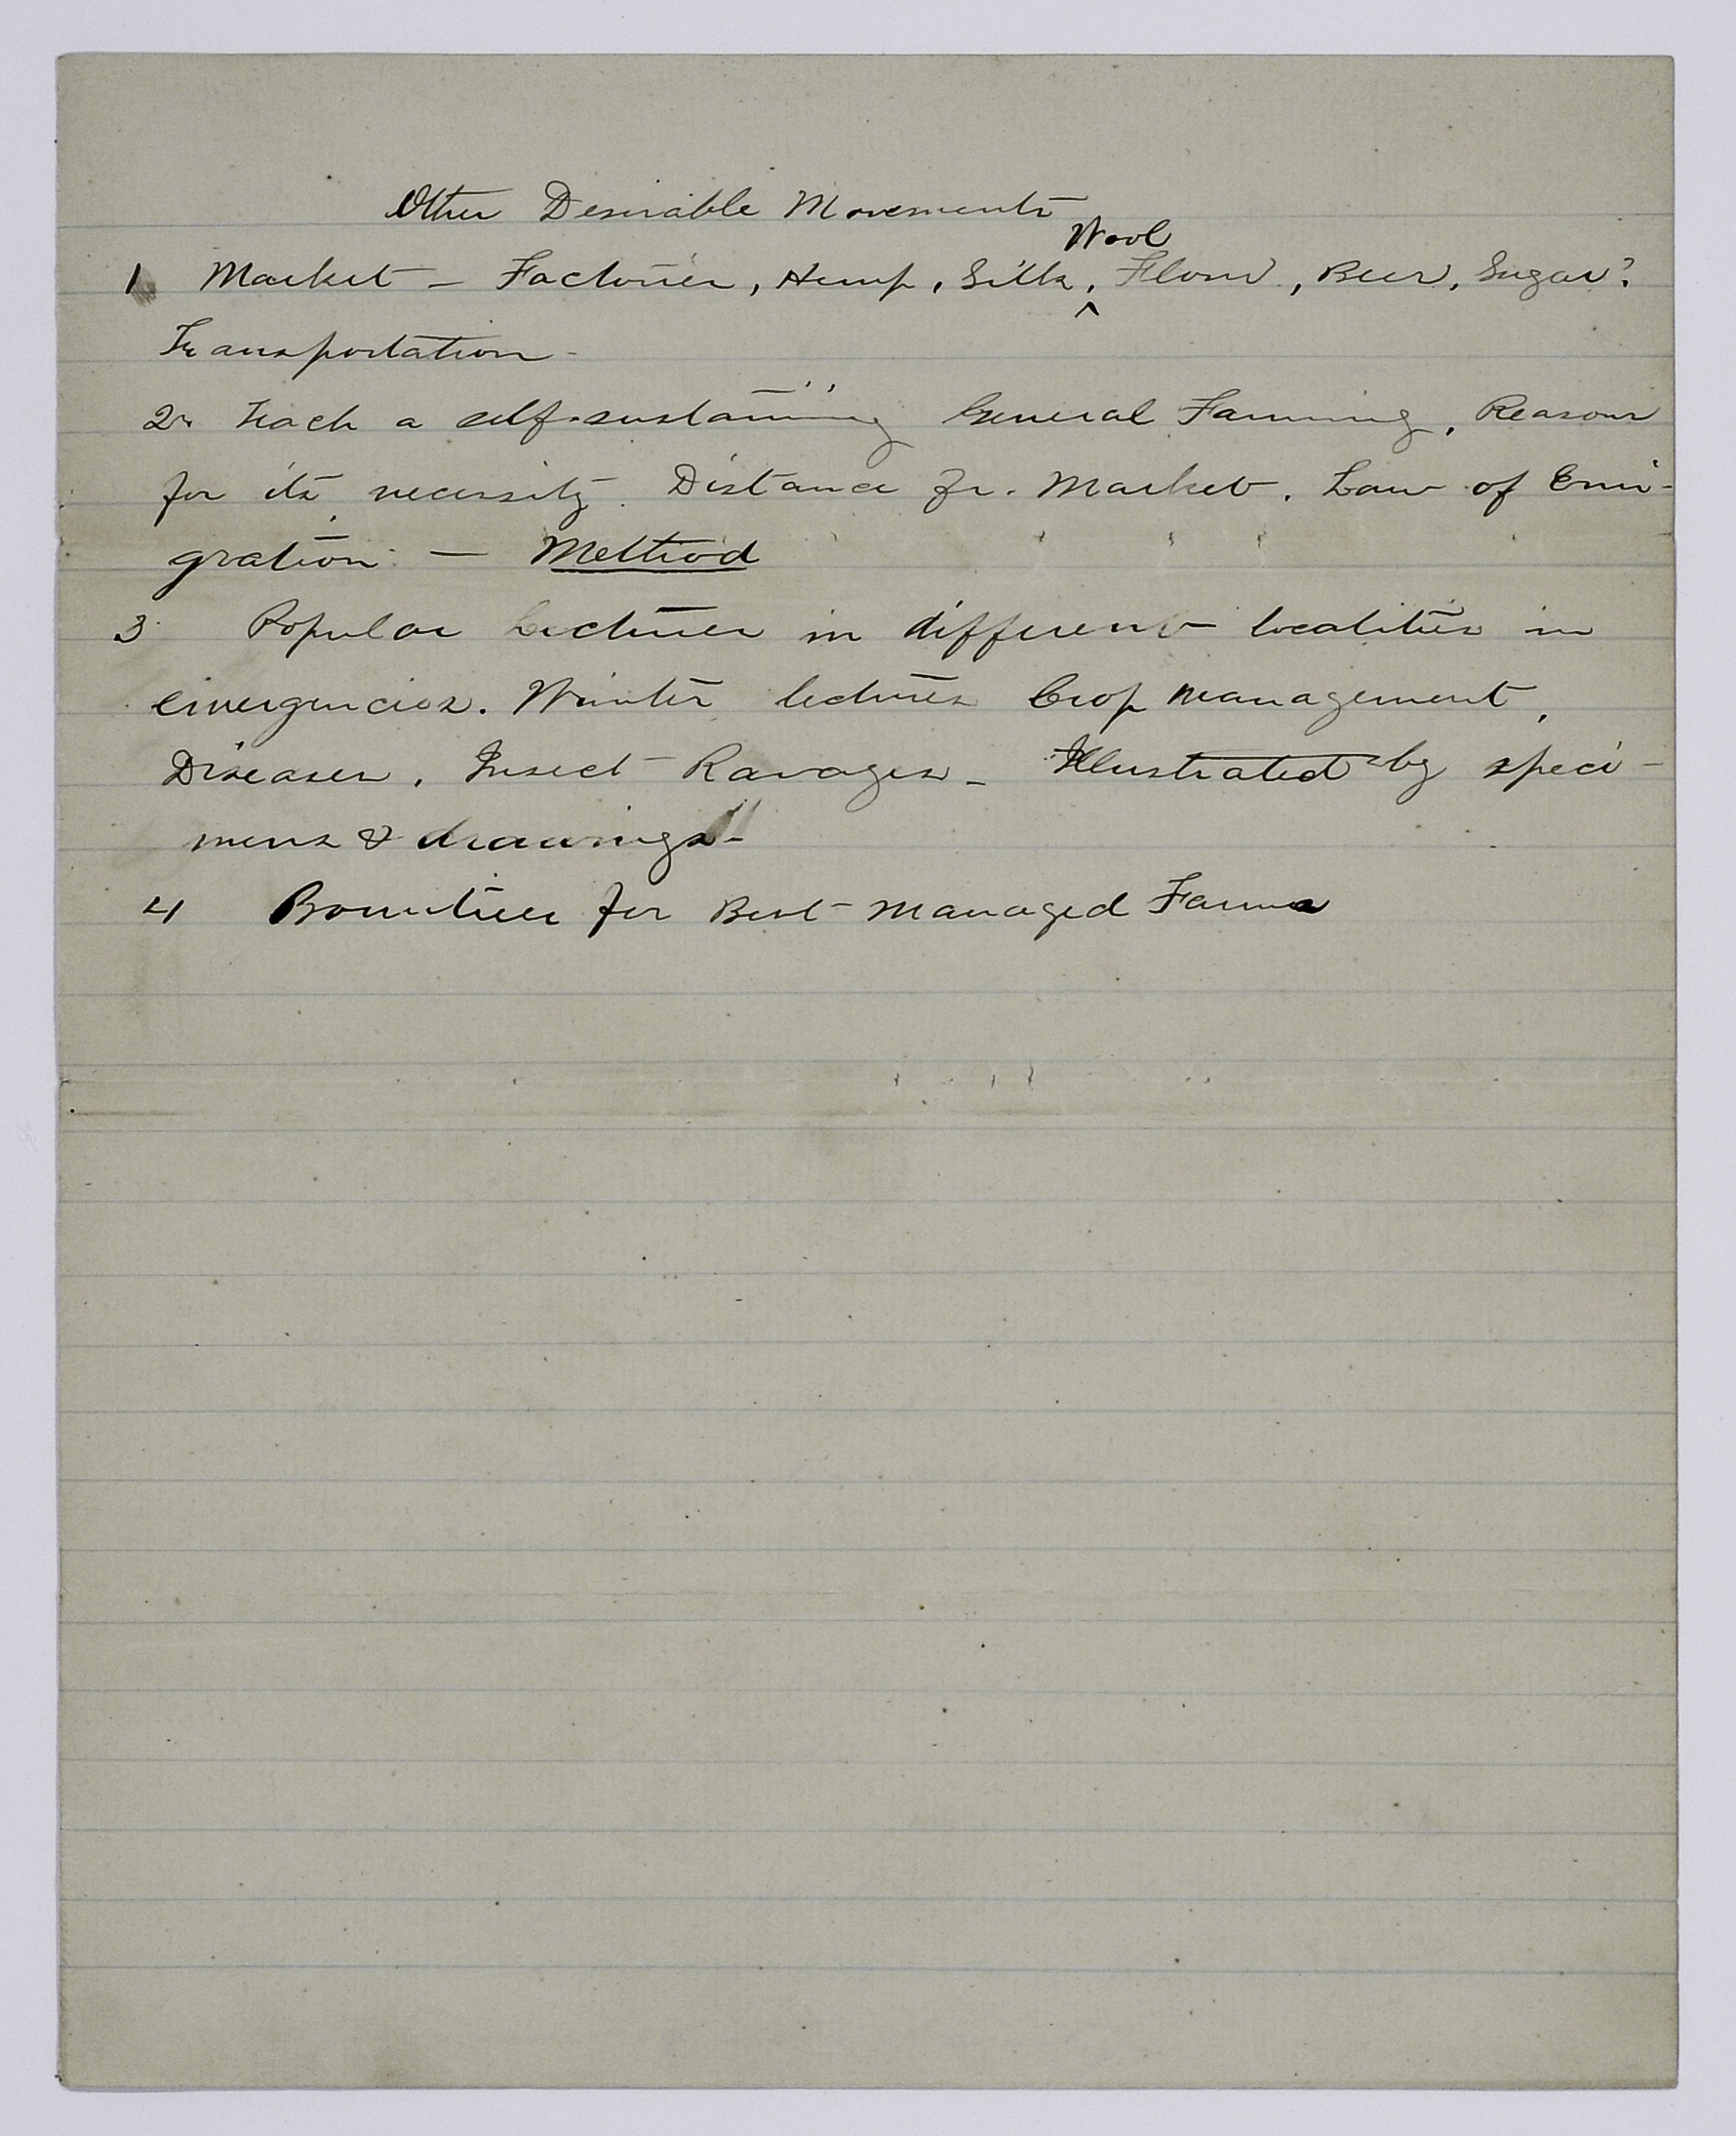 Other Desirable Movements
1. Market - Factories, Hemp, Silk, ^Wool Flour, Beer, Sugar?
Transportation -
2. Teach a self-sustaining General Farming. Reasons
for its necessity. Distance fr. Market. Law of Emi-
gration. - Method
3 Popular Lectures in different localities in
emergencies. Winter lectures Crop management,
Diseases, Insect Ravages - Illustrated by speci-
mens & drawings -
4 Bounties for Best managed Farms